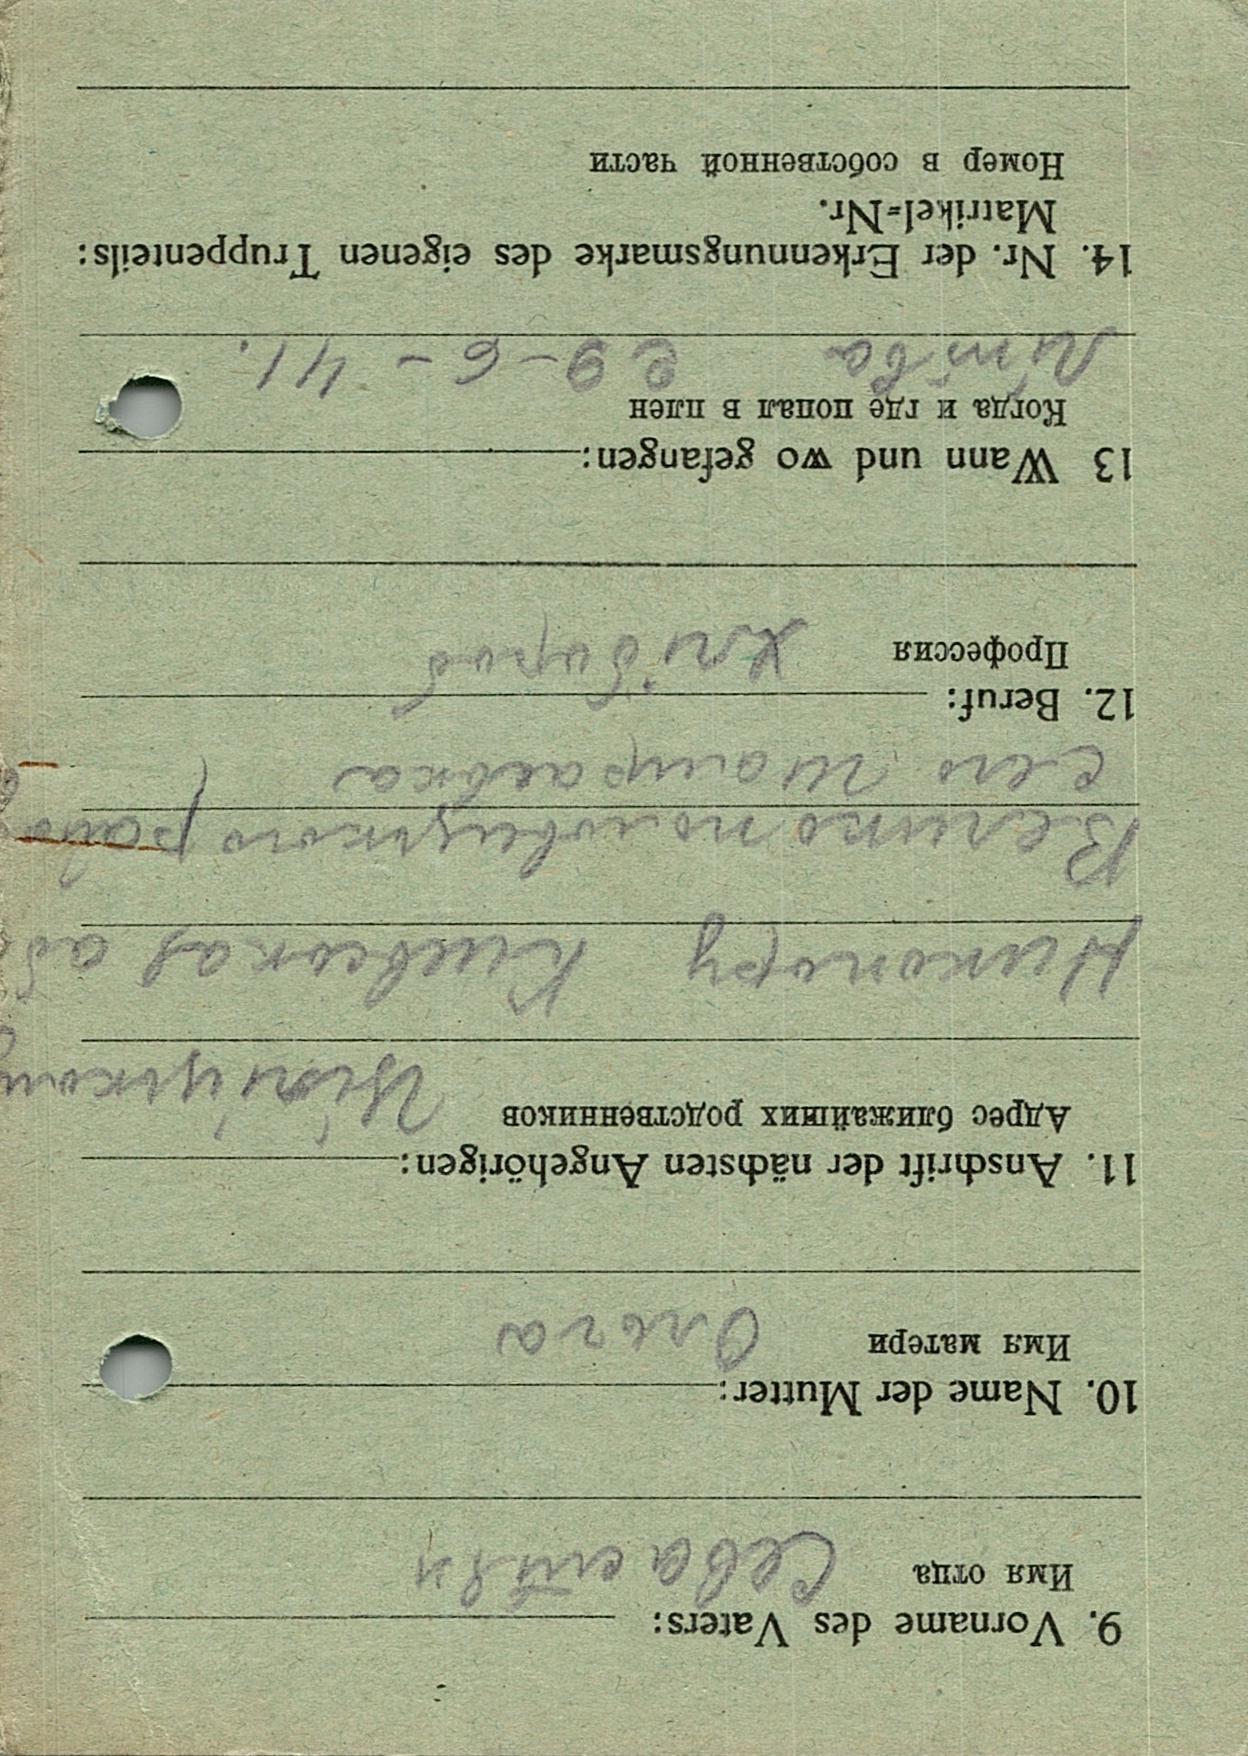 9. Vorname des Vaters:
Имя отца Севастян
10. Name der Mutter:
Имя матери Ольга
11. Anschrift der nächsten Angehörigen:
Адрес ближайших родственников
Никопору Киевская аб
Великополовецкого райо
село
12. Beruf:
Профессия хлібороб
13 Wann und wo gefangen:
Когда и где попал в плен
Литва 29-6-41.
14. Nr. der Erkennungsmarke des eigenen Truppenteils:
Matrikel=Nr.
Номер в собственной части